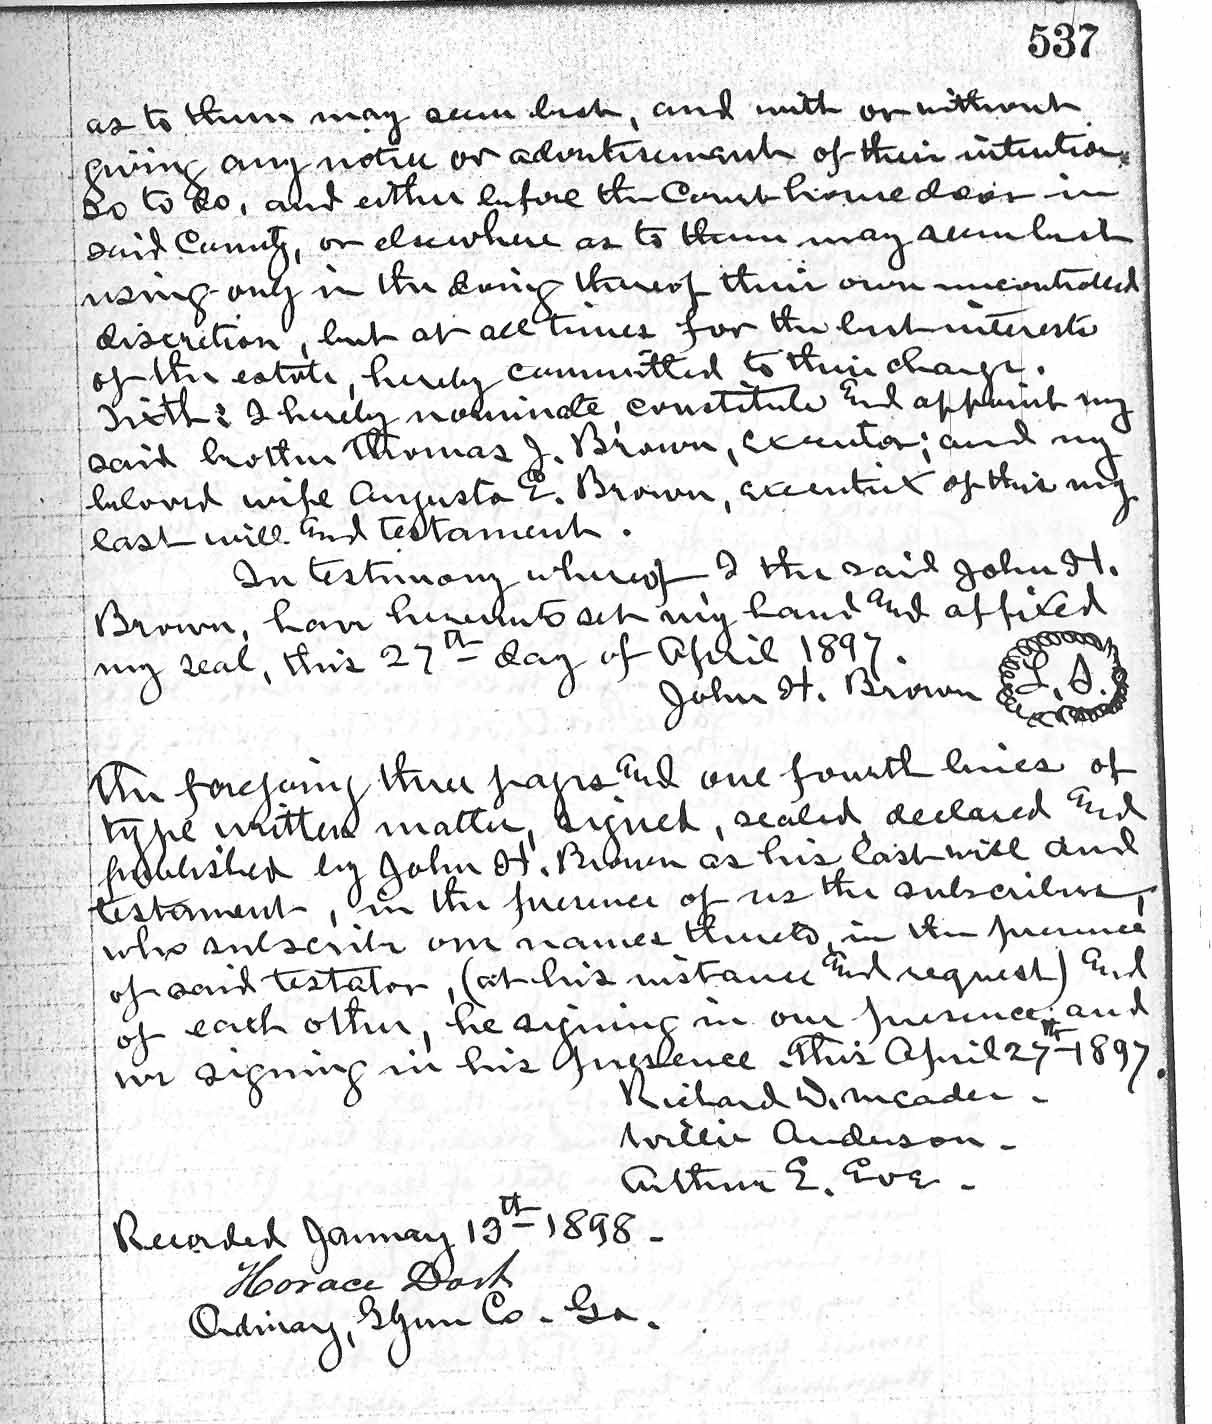 537
as to them may seem best, and with or without
giving any notice or advertisement of their intention
so to do, and either before the Court house door in
said County, or elsewhere as to them may seem best
using only in the doing thereof their own uncontrolled
discretion, but at all times for the best interests
of the estate, hereby committed to their charge.
Sixth: I hereby nominate, constitute and appoint my
said brother Thomas J. Brown, executor; and my
beloved wife Augusta E. Brown, executrix of this my
last will and testament.
In testimony whereof I the said John H.
Brown, have hereunto set my hand and affixed
my seal, this 27th day of April 1897.
John H. Brown L.S.
The foregoing three pages and one fourth lines of
type written matter, signed, sealed, declared and
published by John H. Brown as his last will and
testament, in the presence of us the subscribers,
who subscribe our names thereto, in the presence
of said testator, (at his instance and request) and
of each other, he signing in our presence, and
we signing in his presence. This April 27th 1897.
Richard D. Meader.
Willie Anderson.
Arthur E. Eve.
Recorded January 13th 1898.
Horace Dart
Ordinary, Glynn Co. Ga.